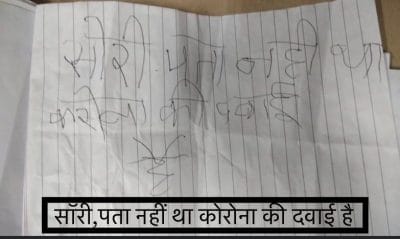 सोरी पता नही था
करोना की दवाई
है
सॉरी,पता नहीं था कोरोना की दवाई है